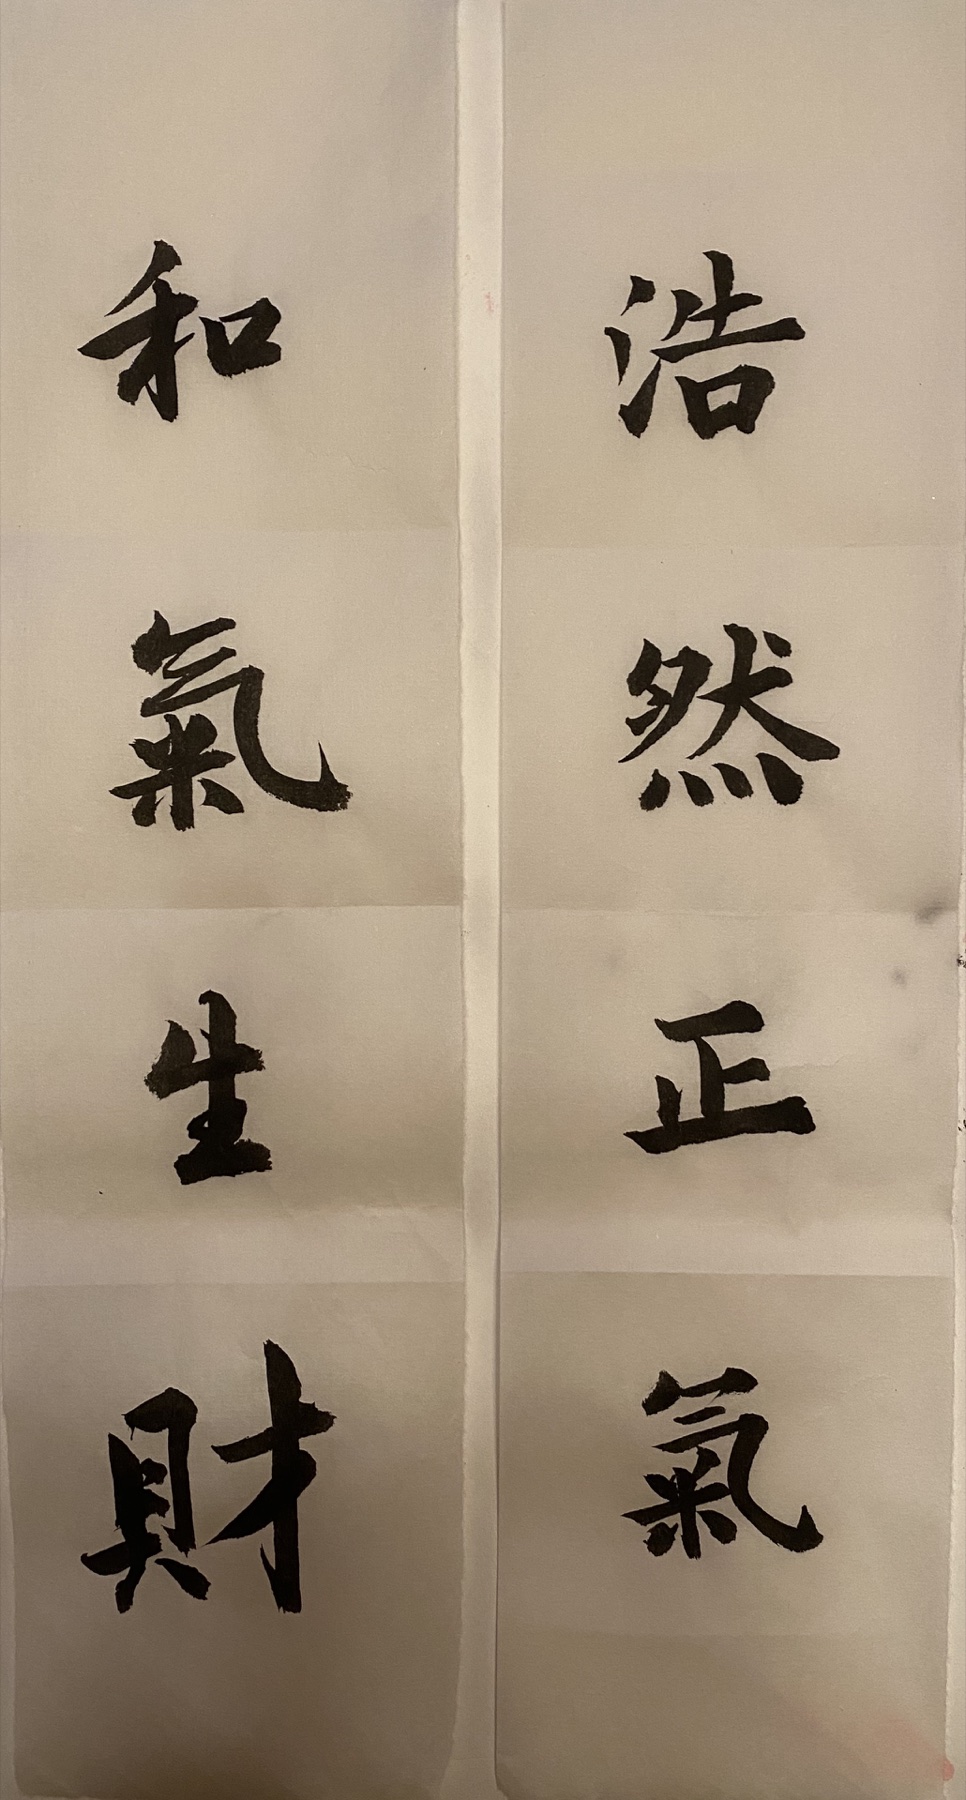 浩然正氣
和氣生財